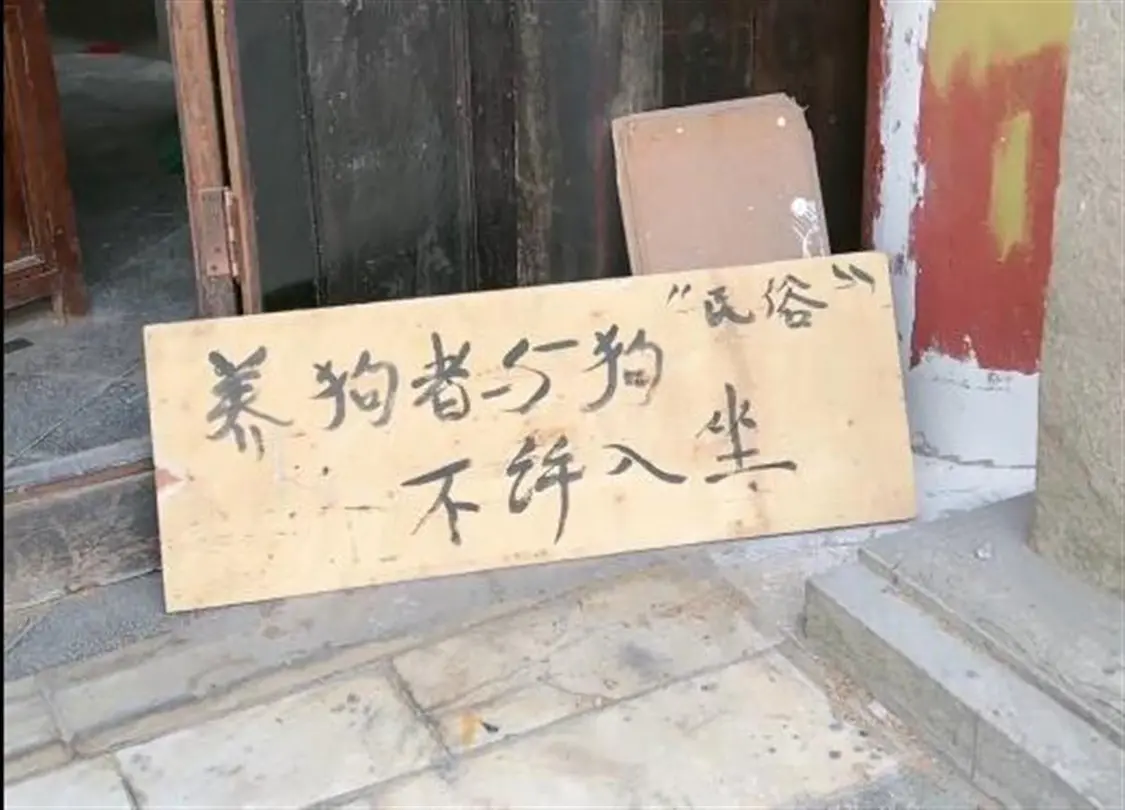 养狗者与狗"民俗"
不许入坐